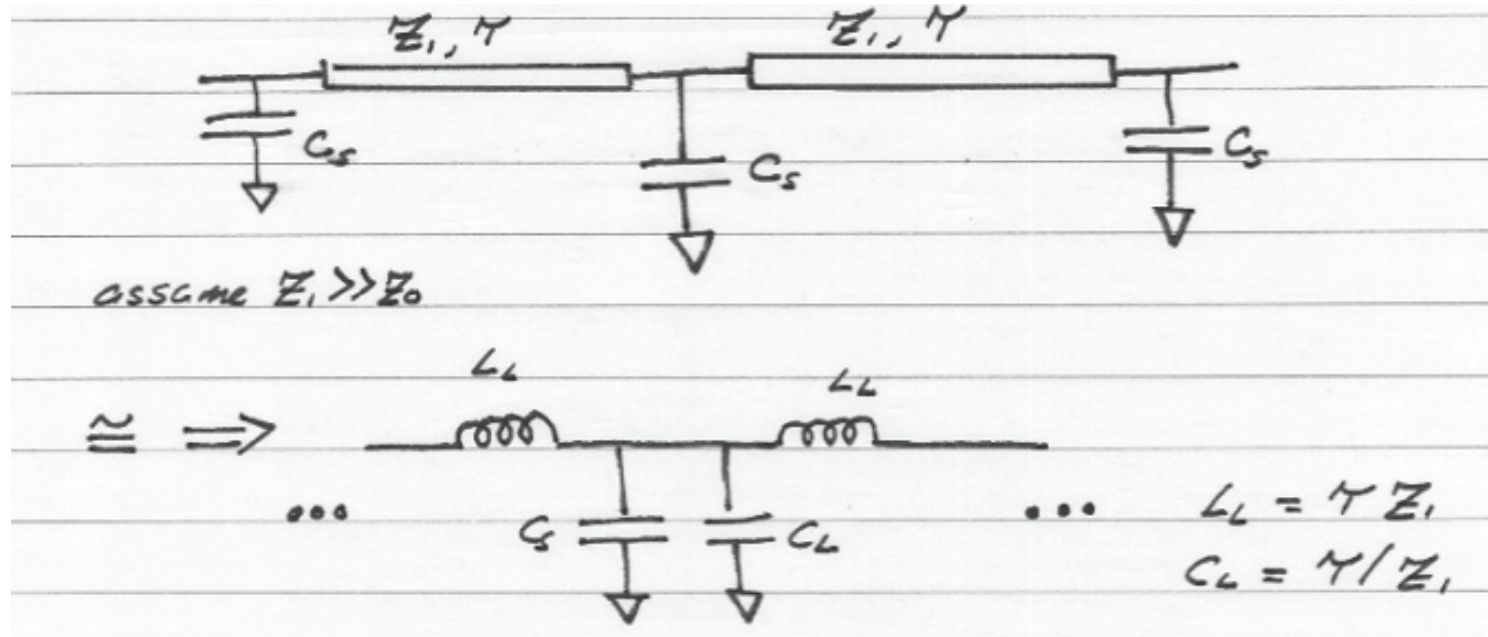 Z₁, τ Z₁, τ
C_s
C_s
C_s
assume Z₁ >> Z₀
L_L
L_L
≅ ⇒
... C_s C_L ...
L_L = τ Z₁
C_L = τ / Z₁